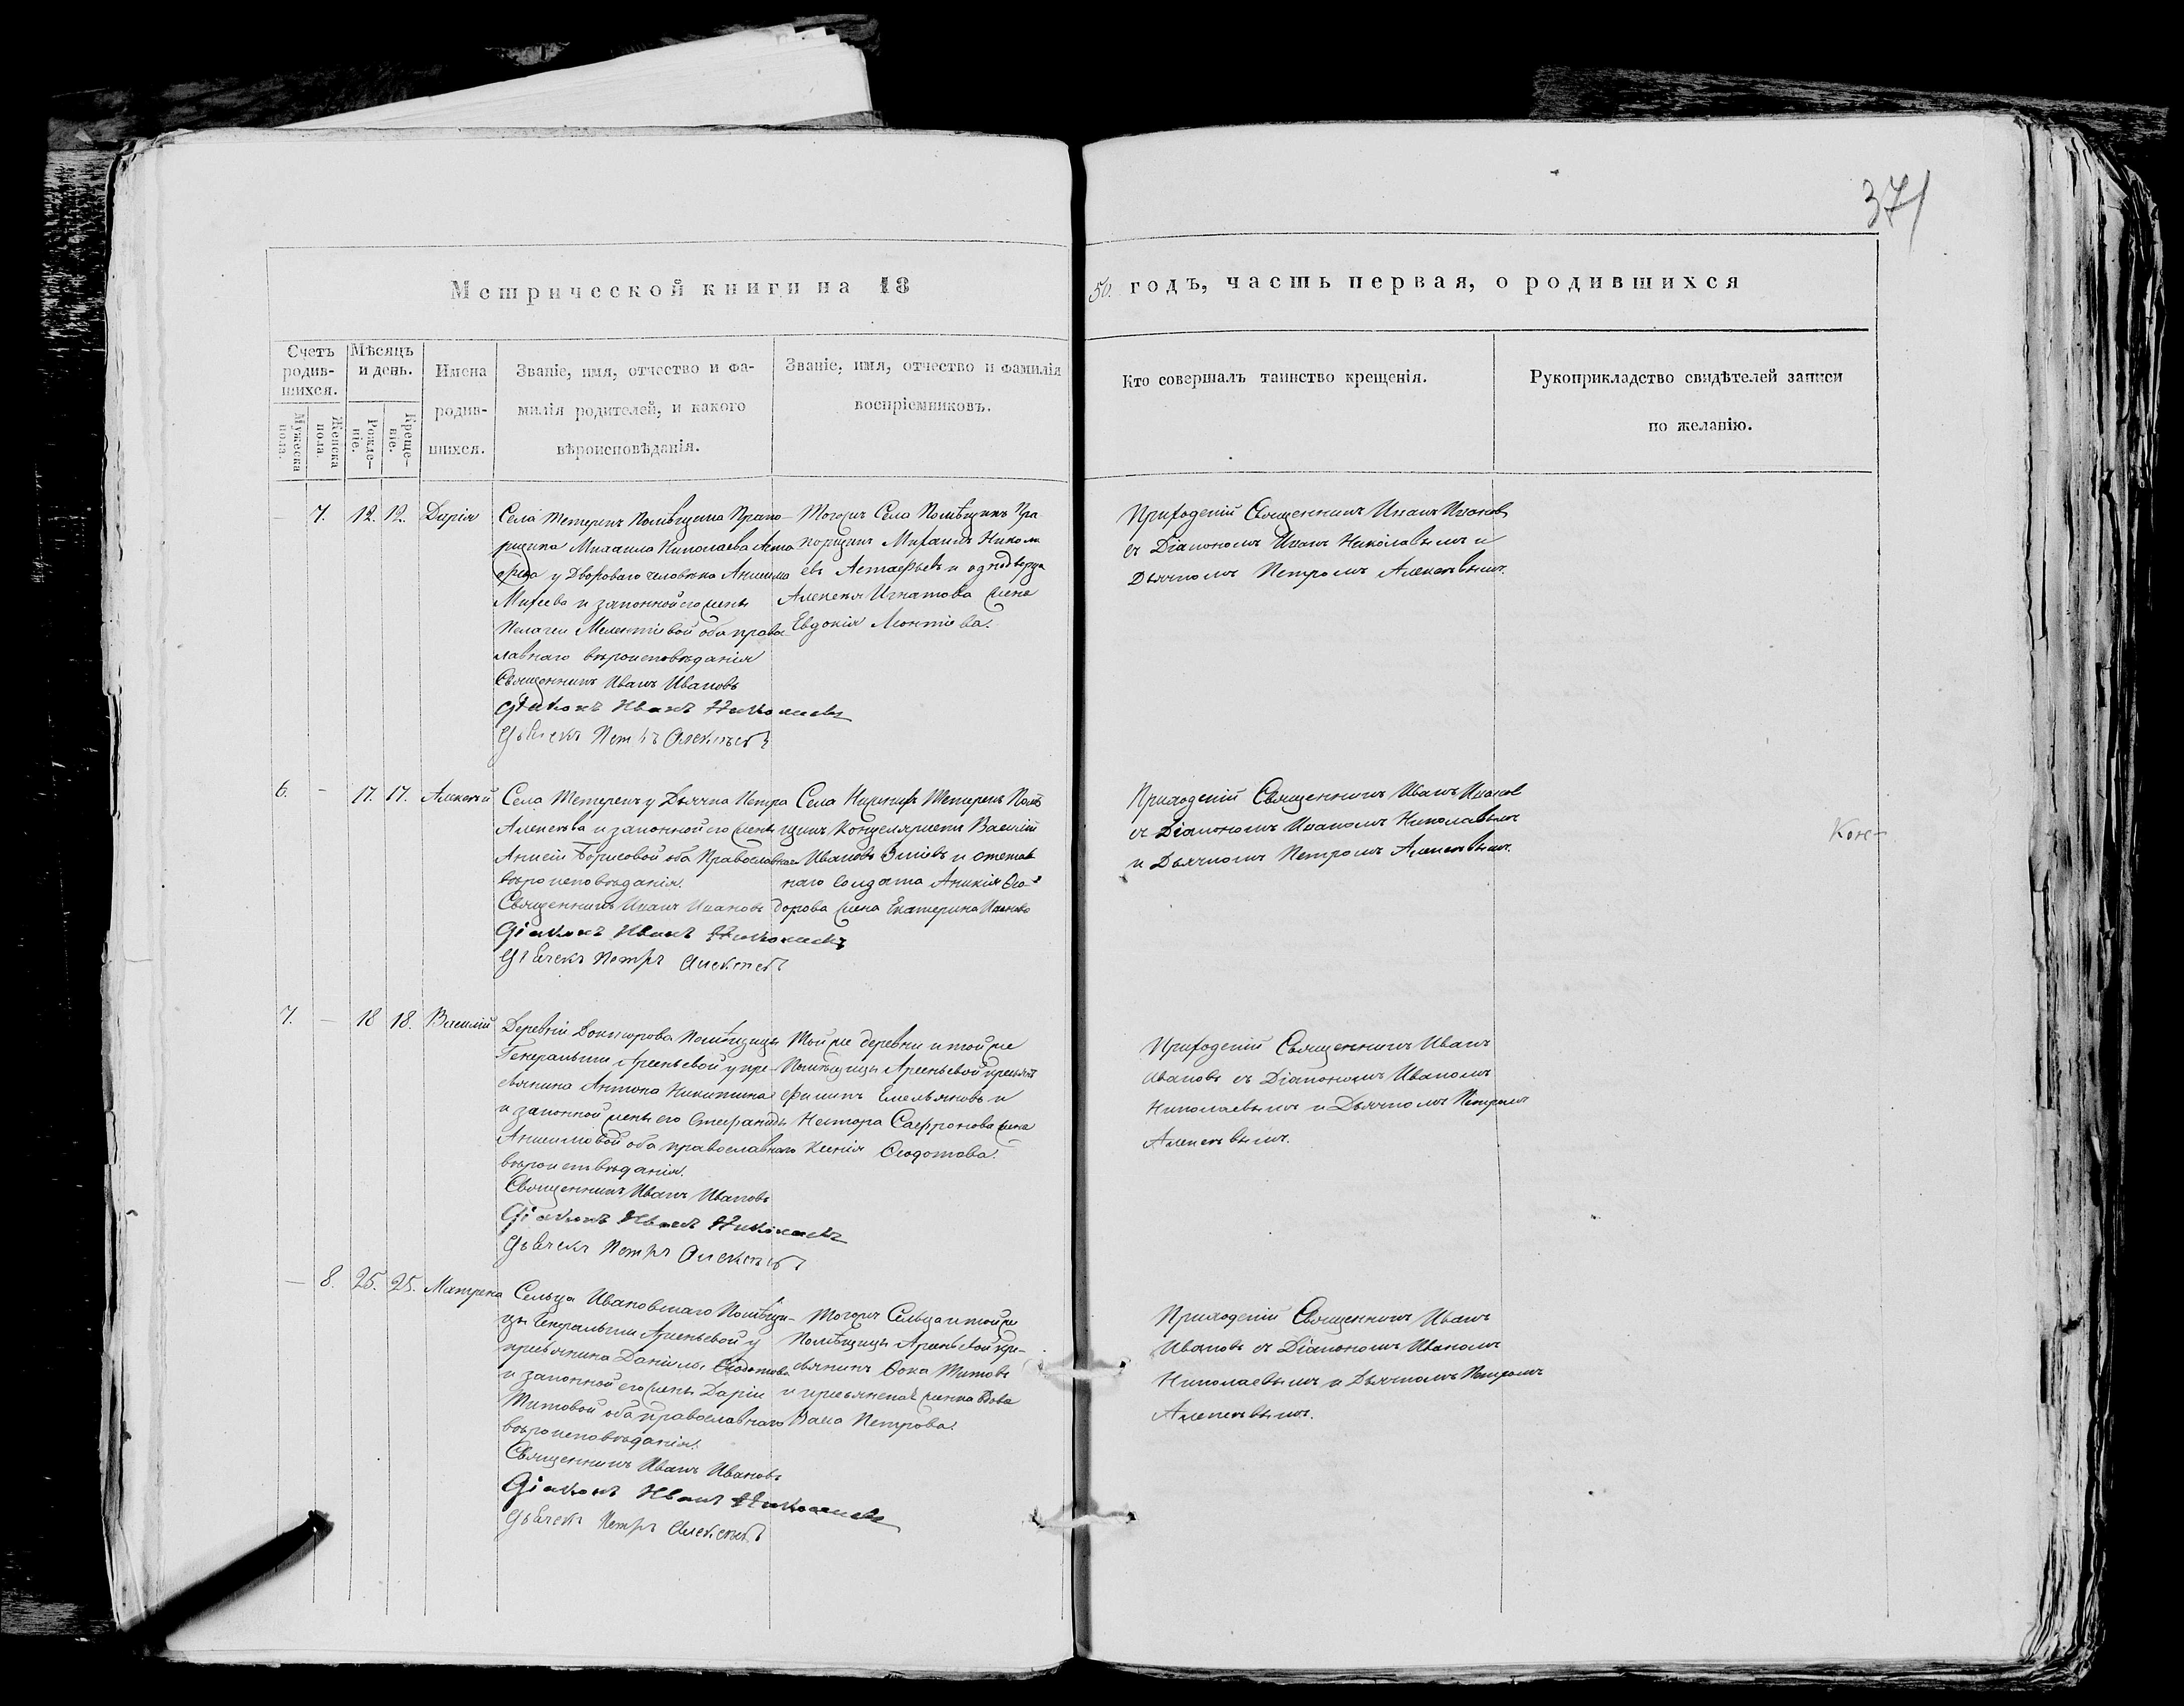 371
Метрической книги на 18
50. годъ, часть первая, о родившихся
Счетъ родив-шихся.
Мужеска пола.
Женска пола.
Мѣсяцъ и день.
Рожде-ніе.
Креще-ніе.
Имена
родив-
шихся.
Званіе, имя, отчество и фа-
милія родителей, и какого
вѣроисповѣданія.
Званіе, имя, отчество и фамилія
воспріемниковъ.
Кто совершалъ таинство крещенія.
Рукоприкладство свидѣтелей записи
по желанію.
7. 12. 12. Дарія
Села Тетеренъ Помѣщика Прапо-
рщика Михаила Николаева Аста
фьева у Двороваго человѣка Анисима
Михеева и законной его жены
Пелагеи Мелентіевой оба право
славнаго вѣроисповѣданія
Священникъ Иванъ Ивановъ
Діаконъ Иванъ Николаевъ
Дьячекъ Петръ Алексѣевъ
Тогожъ Села Помѣщикъ Пра
порщикъ Михаилъ Никола
евъ Астафьевъ и однодворца
Алексѣя Игнатова жена
Евдокія Леонтіева.
Приходскій Священникъ Иванъ Ивановъ
съ Діакономъ Иваномъ Николаевымъ и
Дьячкомъ Петромъ Алексѣевымъ.
6. - 17. 17. Алексѣй
Села Тетеренъ у Дьячка Петра
Алексѣева и законной его жены
Анисіи Борисовой оба Православнаго
вѣроисповѣданія.
Священникъ Иванъ Ивановъ
Діаконъ Иванъ Николаевъ
Дьячекъ Петръ Алексѣевъ
Села Нижнихъ Тетеренъ Помѣ
щикъ Концеляристъ Василій
Ивановъ и отстав
наго солдата Аникія Ѳео-
дорова жена Екатерина Иванова
Приходскій Священникъ Иванъ Ивановъ
съ Діакономъ Иваномъ Николаевымъ
и Дьячкомъ Петромъ Алексѣевымъ.
7. - 18 18. Василій
Деревни Помѣщицы
Генеральши Арсеньевой у кре-
стьянина Антона Никитина
и законной жены его Стефаниды
Анисимовой оба православнаго
вѣроисповѣданія.
Священникъ Иванъ Ивановъ
Діаконъ Иванъ Николаевъ
Дьячекъ Петръ Алексѣевъ
Той же деревни и той же
Помѣщицы Арсеньевой крестьян
Филипъ Емельяновъ и
Нестора Сафронова жена
Ксенія Ѳеодотова.
Приходскій Священникъ Иванъ
Ивановъ съ Діакономъ Иваномъ
Николаевымъ и Дьячкомъ Петромъ
Алексѣевымъ.
- 8. 25. 25. Матрена
Сельца Ивановскаго Помѣщи-
цы Генеральши Арсеньевой у
крестьянина Даніила Ѳеодотова
и законной его жены Даріи
Титовой оба православнаго
вѣроисповѣданія.
Священникъ Иванъ Ивановъ
Діаконъ Иванъ Николаевъ
Дьячекъ Петръ Алексѣевъ
Тогожъ Сельца и той же
Помѣщицы Арсеньевой кре-
стьянинъ Ѳока Титовъ
и крестьянская женка вдова
Васса Петрова.
Приходскій Священникъ Иванъ
Ивановъ съ Діакономъ Иваномъ
Николаевымъ и Дьячкомъ Петромъ
Алексѣевымъ.